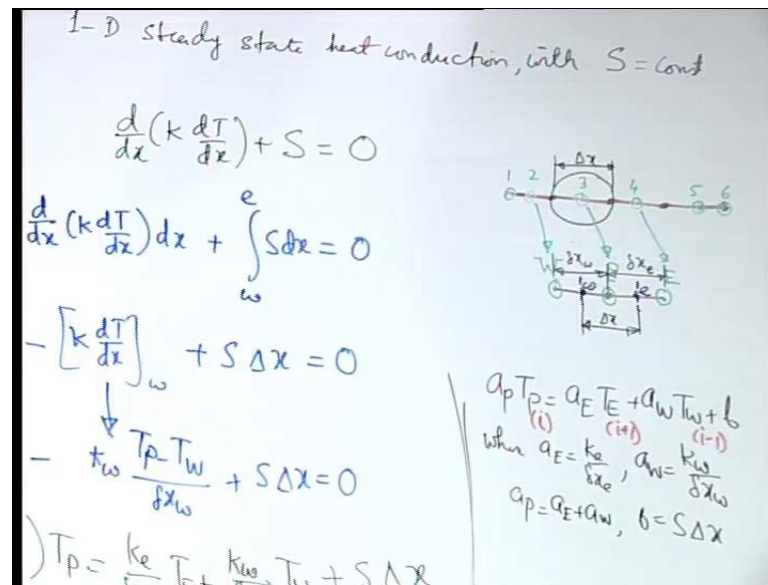 1-D steady state heat conduction, with S = const
d/dx (k dT/dx) + S = 0
d/dx (k dT/dx) dx + ∫_w^e S dx = 0
- [k dT/dx]_w + S Δx = 0
- k_w (T_P - T_W)/δx_w + S Δx = 0
) T_P = k_e T_E + k_w T_W + S Δx
Δx
1 2 3 4 5 6
δx_w δx_e
W P E
w e
Δx
a_P T_P = a_E T_E + a_W T_W + b
(i) (i+1) (i-1)
when a_E = k_e/δx_e, a_W = k_w/δx_w
a_P = a_E + a_W, b = S Δx